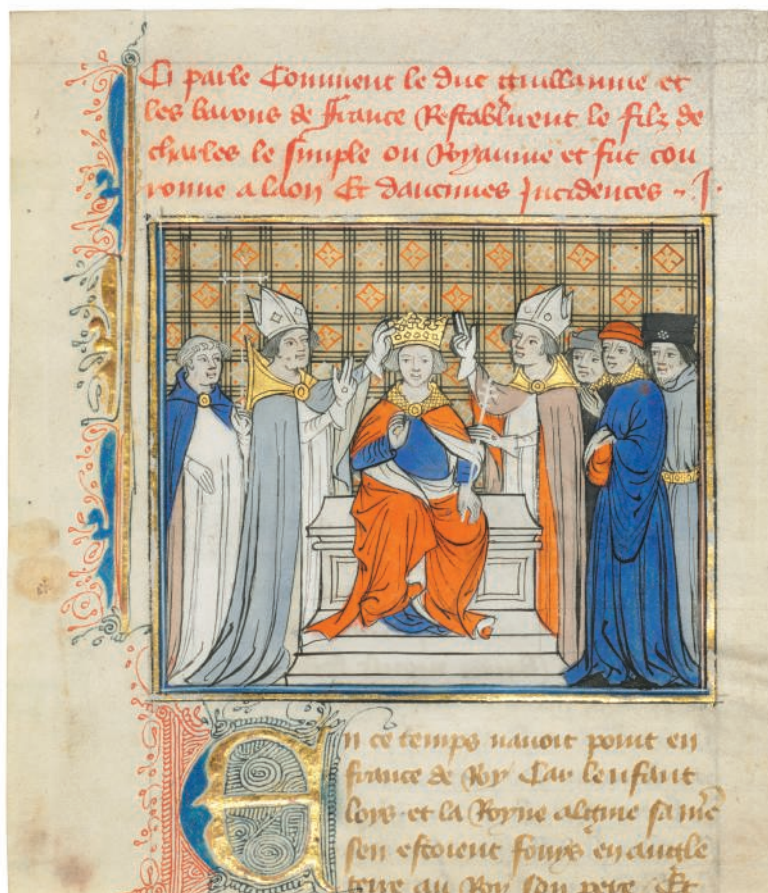 Ci parle Comment le duc guillaume et
les barons de france Restablirent le filz de
charles le simple ou Royaume et fut cou
ronne a laon Et daucunes Incidences
En ce temps nauoit point en
france de Roy Car lenfant
loys et la Royne algiue sa me
sen estoient fouys en angle
terre au Roy son pere Et